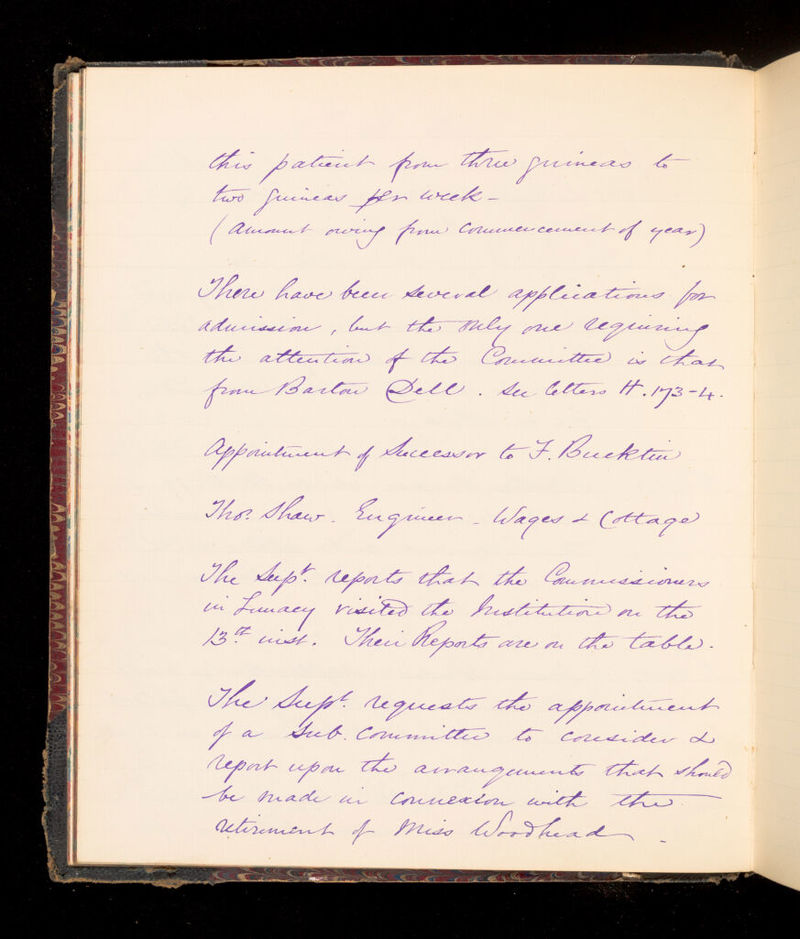 this patient from three guineas to
two guineas per week –
(amount owing from commencement of year)
There have been several applications for
admission, but the only one requiring
the attention of the Committee is that
from Barton Dell. See letters H. 173-4.
Appointment of Successor to F. Bucktin
Thos. Shaw. Engineer – Wages & Cottage
The Supt. reports that the Commissioners
in Lunacy visited the Institution on the
13th inst. Their Reports are on the table.
The Supt. requests the appointment
of a Sub. Committee to consider &
report upon the arrangements that should
be made in connexion with the
retirement of Miss Woodhead.